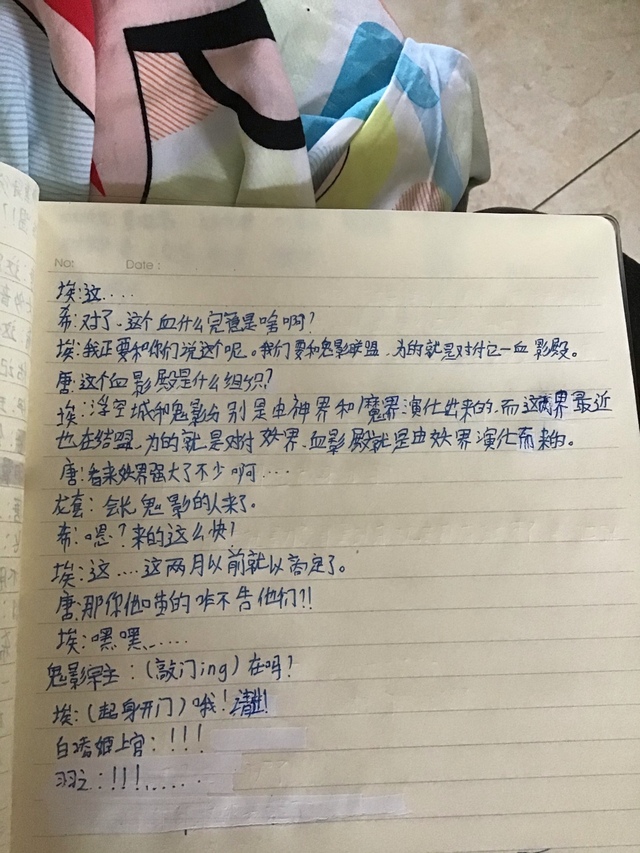 No: Date:
埃:这....
希:对了、这个血什么完蛋是啥啊?
埃:我正要和你们说这个呢。我们要和鬼影联盟,为的就是对付它—血影殿。
唐:这个血影殿是什么组织?
埃:浮空城和鬼影分别是由神界和魔界演化出来的.而这两界最近
也在结盟.为的就是对付妖界.血影殿就是由妖界演化而来的。
唐:看来妖界强大了不少啊....
龙套:会长鬼影的人来了。
希:嗯?来的这么快?
埃:这....这两月以前就以商定了。
唐:那你他喵的咋不告他们!!
埃:嘿嘿......
鬼影宗主:(敲门ing)在吗?
埃:(起身开门)哦!请进!
白 姬上官:!!!
羽之:!!!......